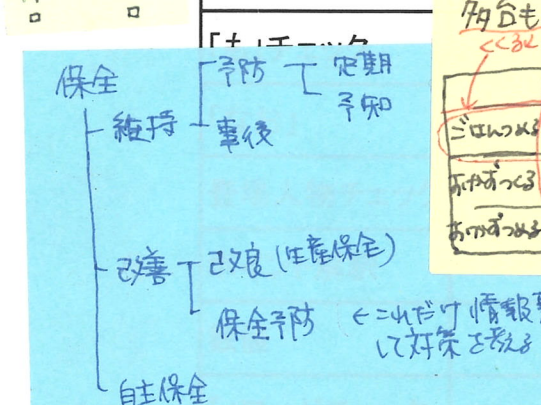 保全
維持
予防
定期
予知
事後
改善
改良(生産保全)
保全予防
←これだけ 情報
して対策を考える
自主保全
チェック
ごはんつめる
おかずつくる
おかずつめる